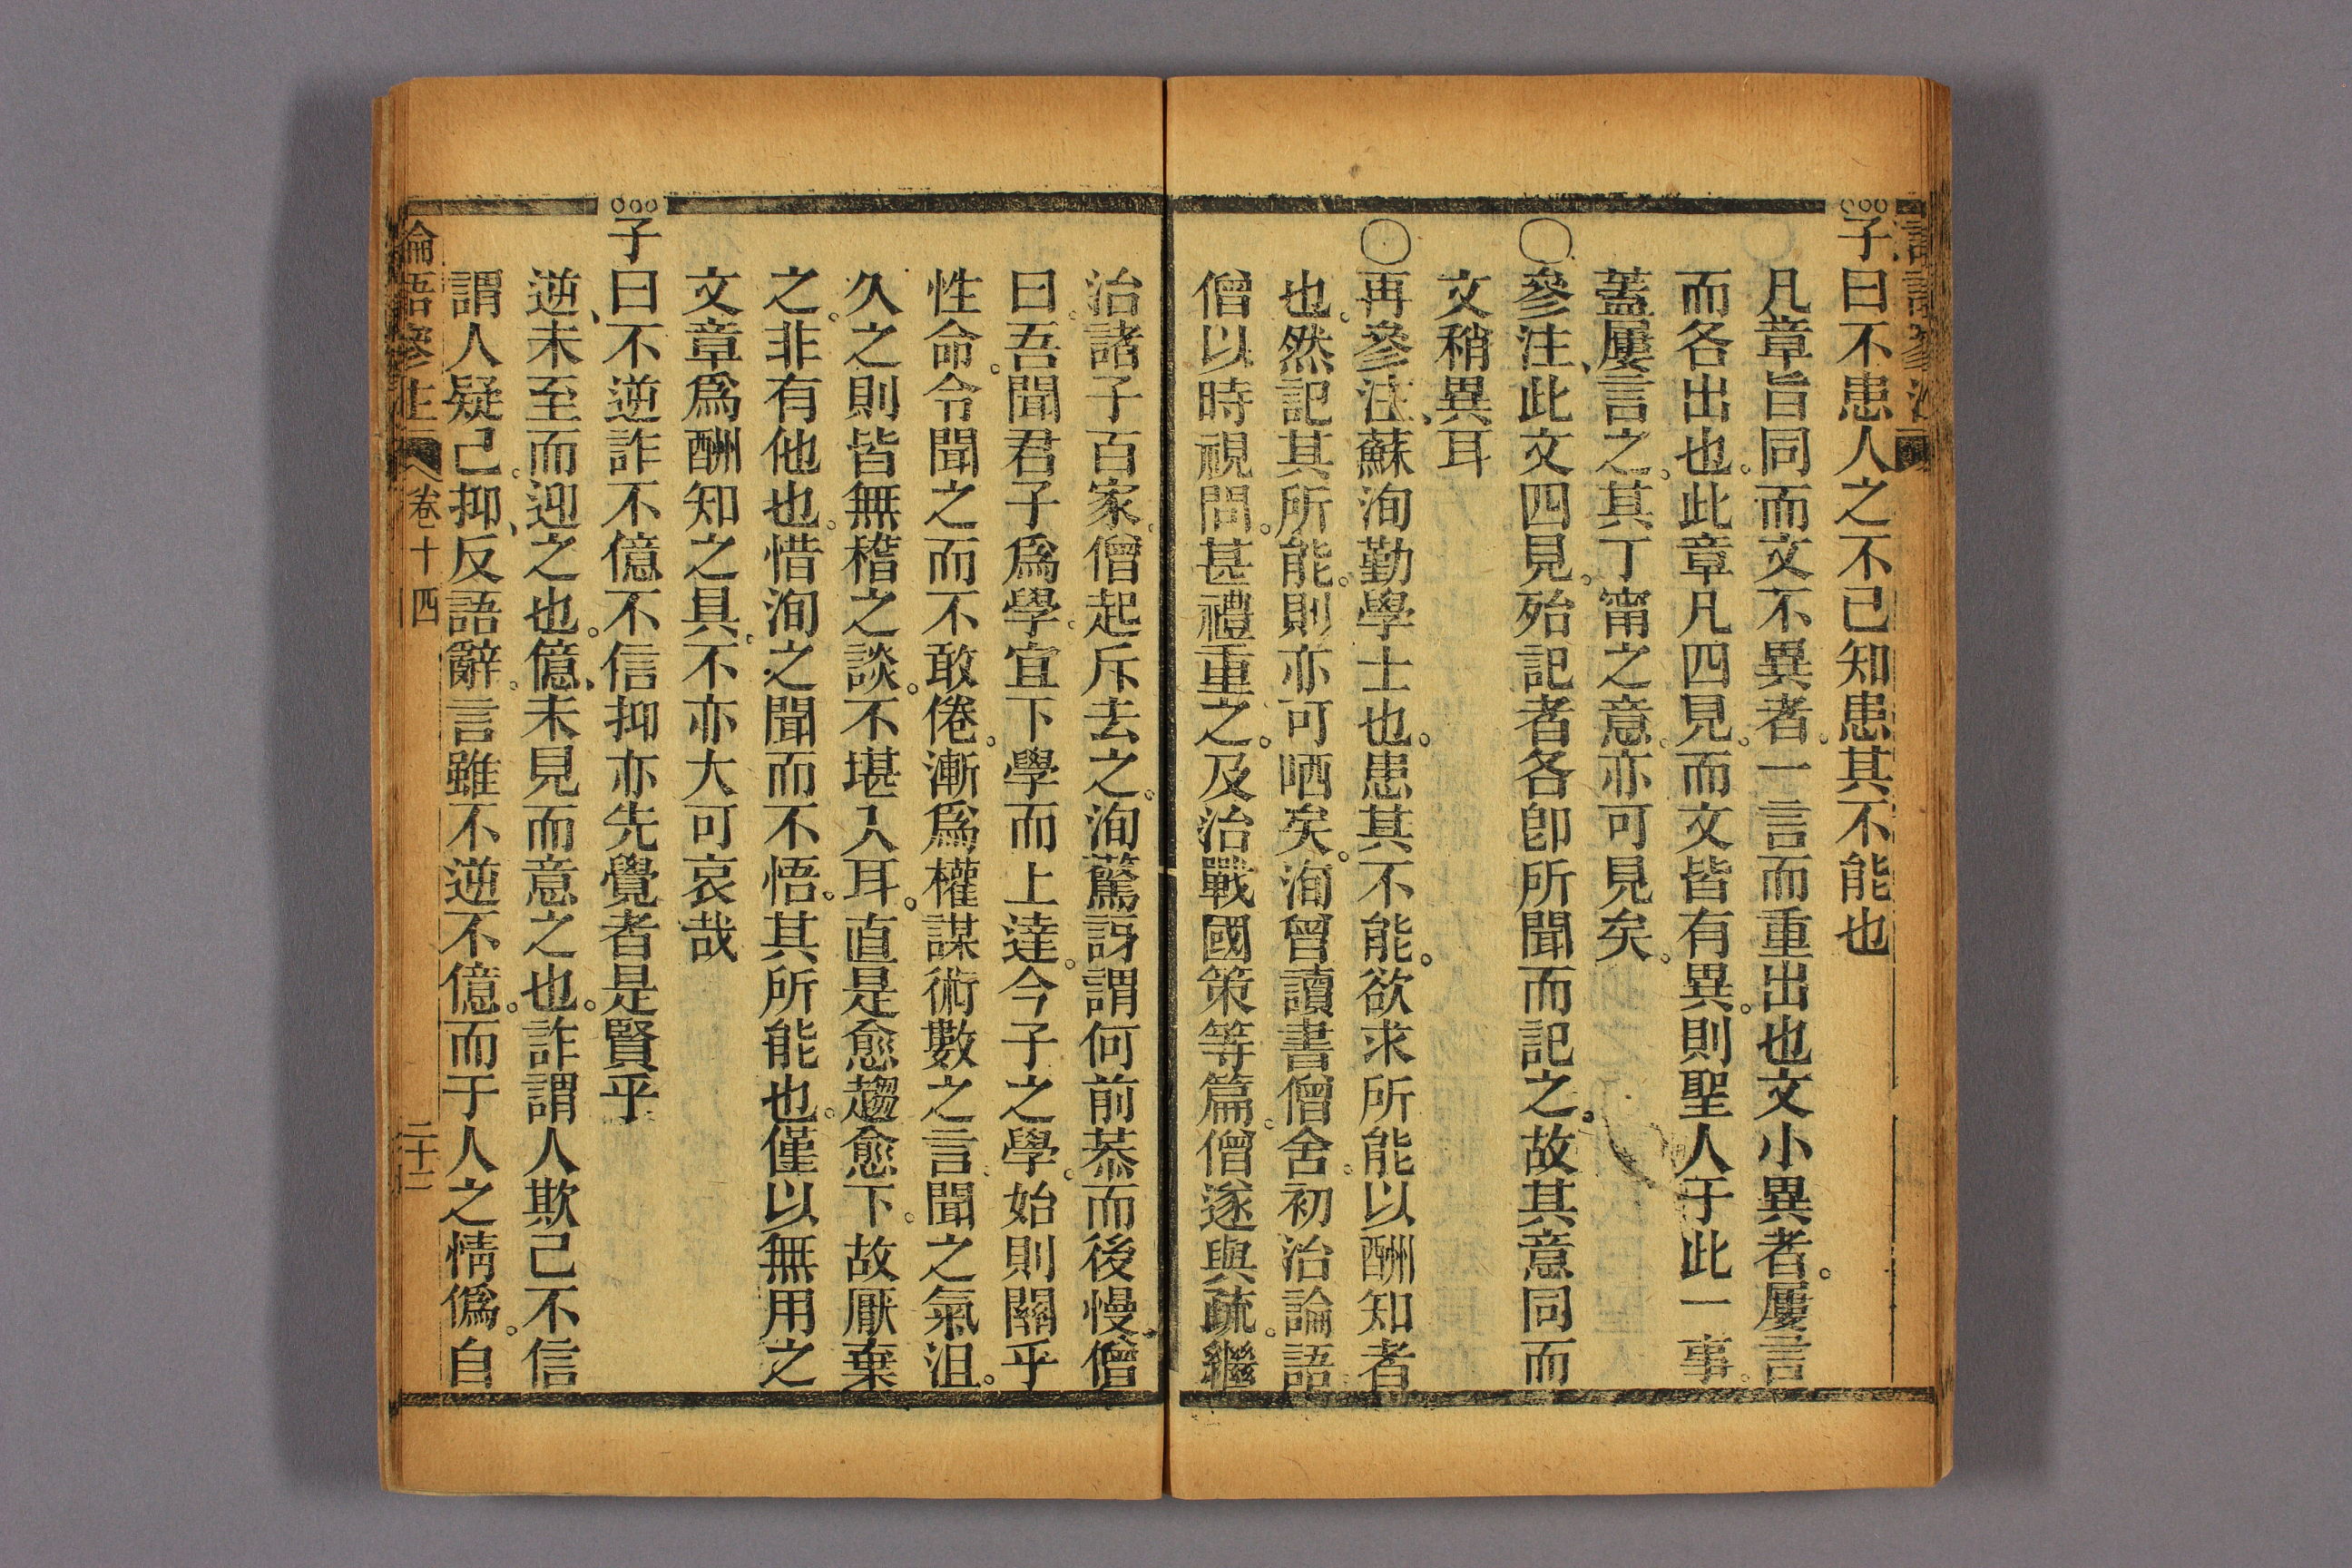 子曰不患人之不己知患其不能也
凡章旨同而文不異者。一言而重出也文小異者。屢言
而各出也。此章凡四見。而文皆有異。則聖人于此一事。
蓋屢言之。其丁甯之意。亦可見矣。
〇參注、此文四見。殆記者各卽所聞而記之。故其意同而
文稍異耳
〇再參注、蘇洵勤學士也。患其不能。欲求所能以酬知者
也。然記其所能。則亦可哂矣。洵曾讀書僧舍。初治論語。
僧以時視問。甚禮重之。及治戰國策等篇。僧遂與疏。繼
治諸子百家。僧起斥去之。洵驚訝謂何前恭而後慢、僧
曰。吾聞君子爲學。宜下學而上達。今子之學。始則關乎
性命。令聞之而不敢倦。漸爲權謀術數之言。聞之氣沮。
久之則皆無稽之談。不堪入耳。直是愈趨愈下。故厭棄
之。非有他也。惜洵之聞而不悟。其所能也。僅以無用之
文章爲酬知之具。不亦大可哀哉
子曰不逆詐不億不信抑亦先覺者是賢乎
逆、未至而迎之也。億、未見而意之也。詐謂人欺己不信
謂人疑己。抑、反語辭。言雖不逆不億。而于人之情僞。自
論語參注 卷十四